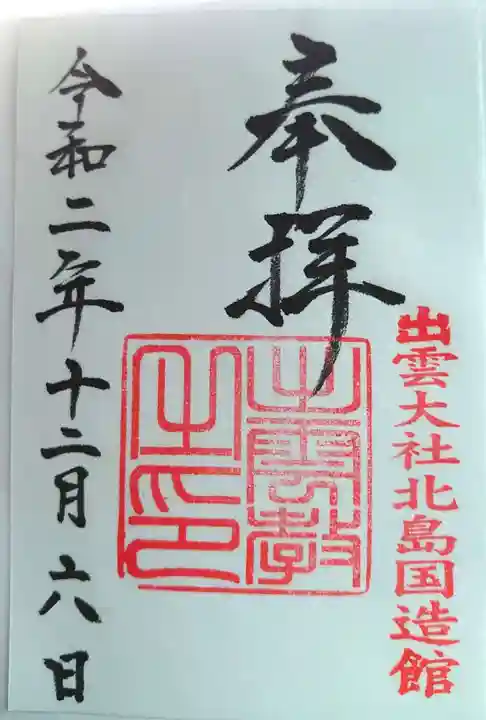 出雲大社北島国造館
奉拝
出雲教
之印
令和二年十二月六日